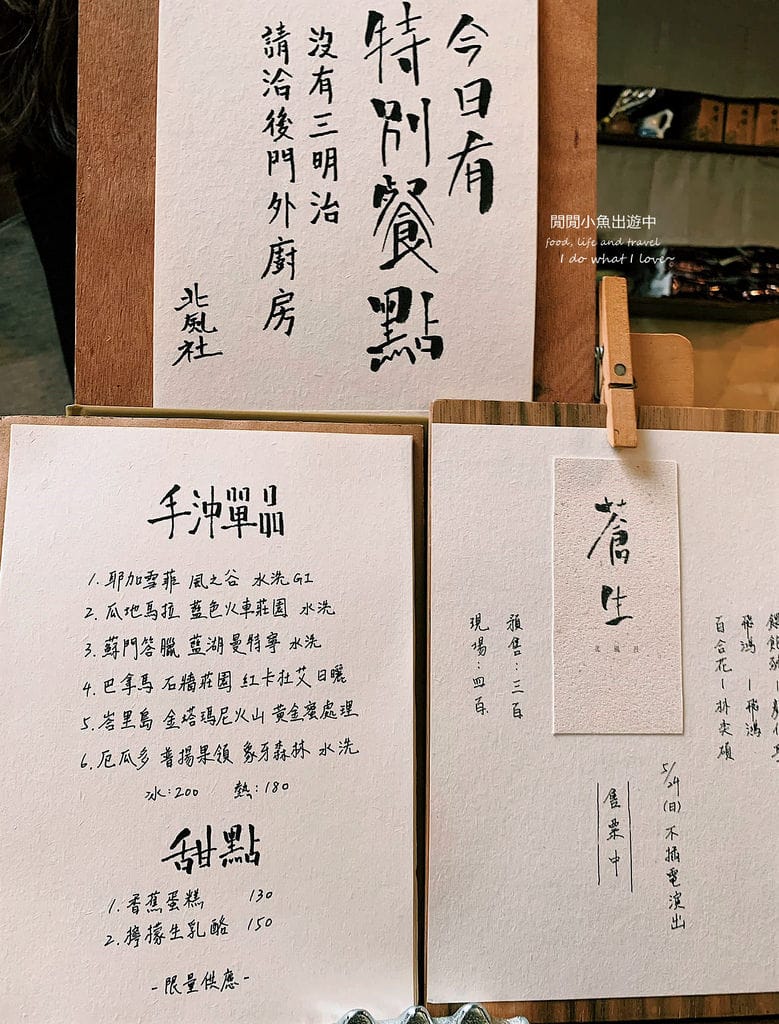 今日有
特別餐點
沒有三明治
請洽後門外廚房
北風社
閒閒小魚出遊中
food, life and travel
I do what I love~
手沖單品
1. 耶加雪菲 風之谷 水洗 G1
2. 瓜地馬拉 藍色火車莊園 水洗
3. 蘇門答臘 藍湖曼特寧 水洗
4. 巴拿馬 石牆莊園 紅卡杜艾 日曬
5. 峇里島 金塔瑪尼火山 黃金蜜處理
6. 厄瓜多 普揚果領 象牙森林 水洗
冰:200 熱:180
甜點
1. 香蕉蛋糕 130
2. 檸檬生乳酪 150
-限量供應-
蒼生
北風社
飛鴻-飛鴻
百合花-林奕碩
5/24(日)不插電演出
售票中
預售:三百
現場:四百